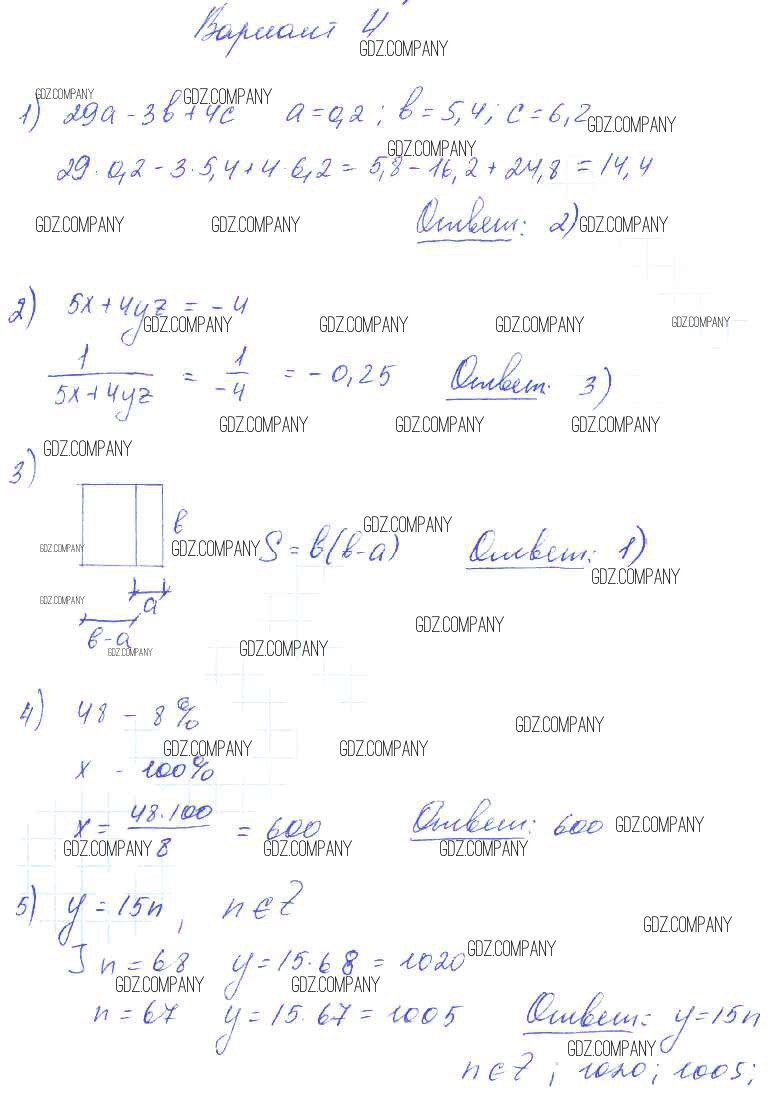 Вариант 4
GDZ.COMPANY
GDZ.COMPANY GDZ.COMPANY
1) 29a - 3в + 4c a = 0,2 ; в = 5,4 ; c = 6,2
GDZ.COMPANY
GDZ.COMPANY
29 · 0,2 - 3 · 5,4 + 4 · 6,2 = 5,8 - 16,2 + 24,8 = 14,4
GDZ.COMPANY GDZ.COMPANY Ответ: 2) GDZ.COMPANY
2) 5x + 4yz = -4
GDZ.COMPANY GDZ.COMPANY GDZ.COMPANY GDZ.COMPANY
1/(5x + 4yz) = 1/-4 = -0,25 Ответ: 3)
GDZ.COMPANY GDZ.COMPANY GDZ.COMPANY
GDZ.COMPANY
3)
в GDZ.COMPANY
GDZ.COMPANY GDZ.COMPANY S = в(в-a) Ответ: 1)
GDZ.COMPANY
GDZ.COMPANY a
GDZ.COMPANY
в-a
GDZ.COMPANY GDZ.COMPANY
4) 48 - 8%
GDZ.COMPANY
GDZ.COMPANY GDZ.COMPANY
x - 100%
x = 48·100/8 = 600 Ответ: 600 GDZ.COMPANY
GDZ.COMPANY GDZ.COMPANY GDZ.COMPANY
5) y = 15n , n∈Z
GDZ.COMPANY
] n = 68 y = 15·68 = 1020 GDZ.COMPANY
GDZ.COMPANY GDZ.COMPANY
n = 67 y = 15·67 = 1005 Ответ: y = 15n
GDZ.COMPANY
n∈Z ; 1020; 1005;